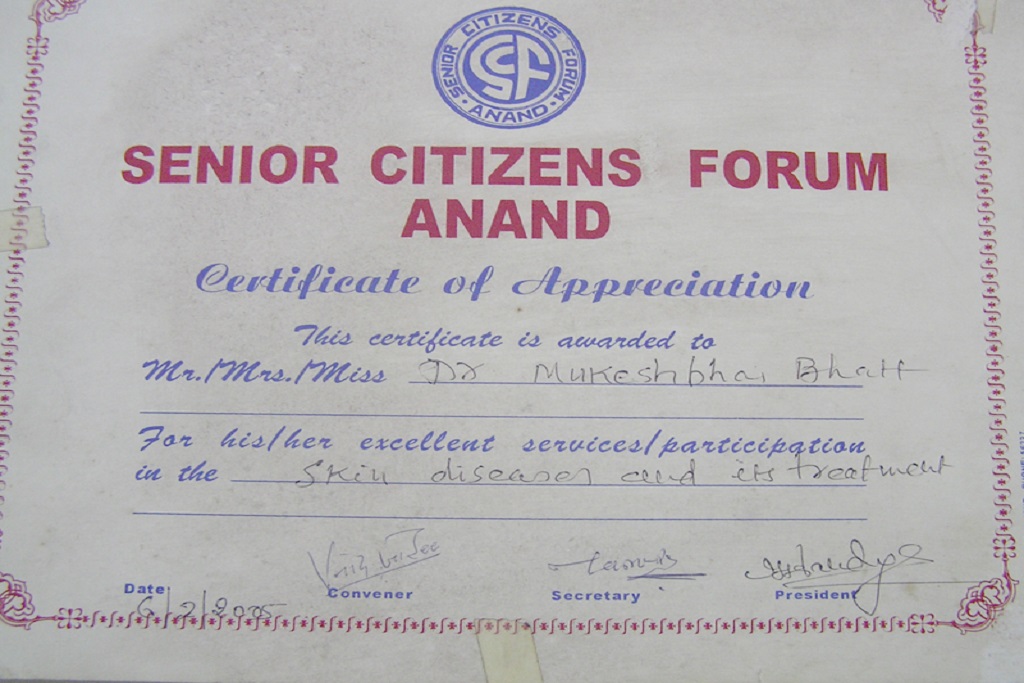 SENIOR CITIZENS FORUM
SCF
• ANAND •
SENIOR CITIZENS FORUM
ANAND
Certificate of Appreciation
This certificate is awarded to
Mr./Mrs./Miss Dr Mukeshbhai Bhatt
For his/her excellent services/participation
in the Skin diseases and its treatment
Date 6/2/2005 Convener Secretary President